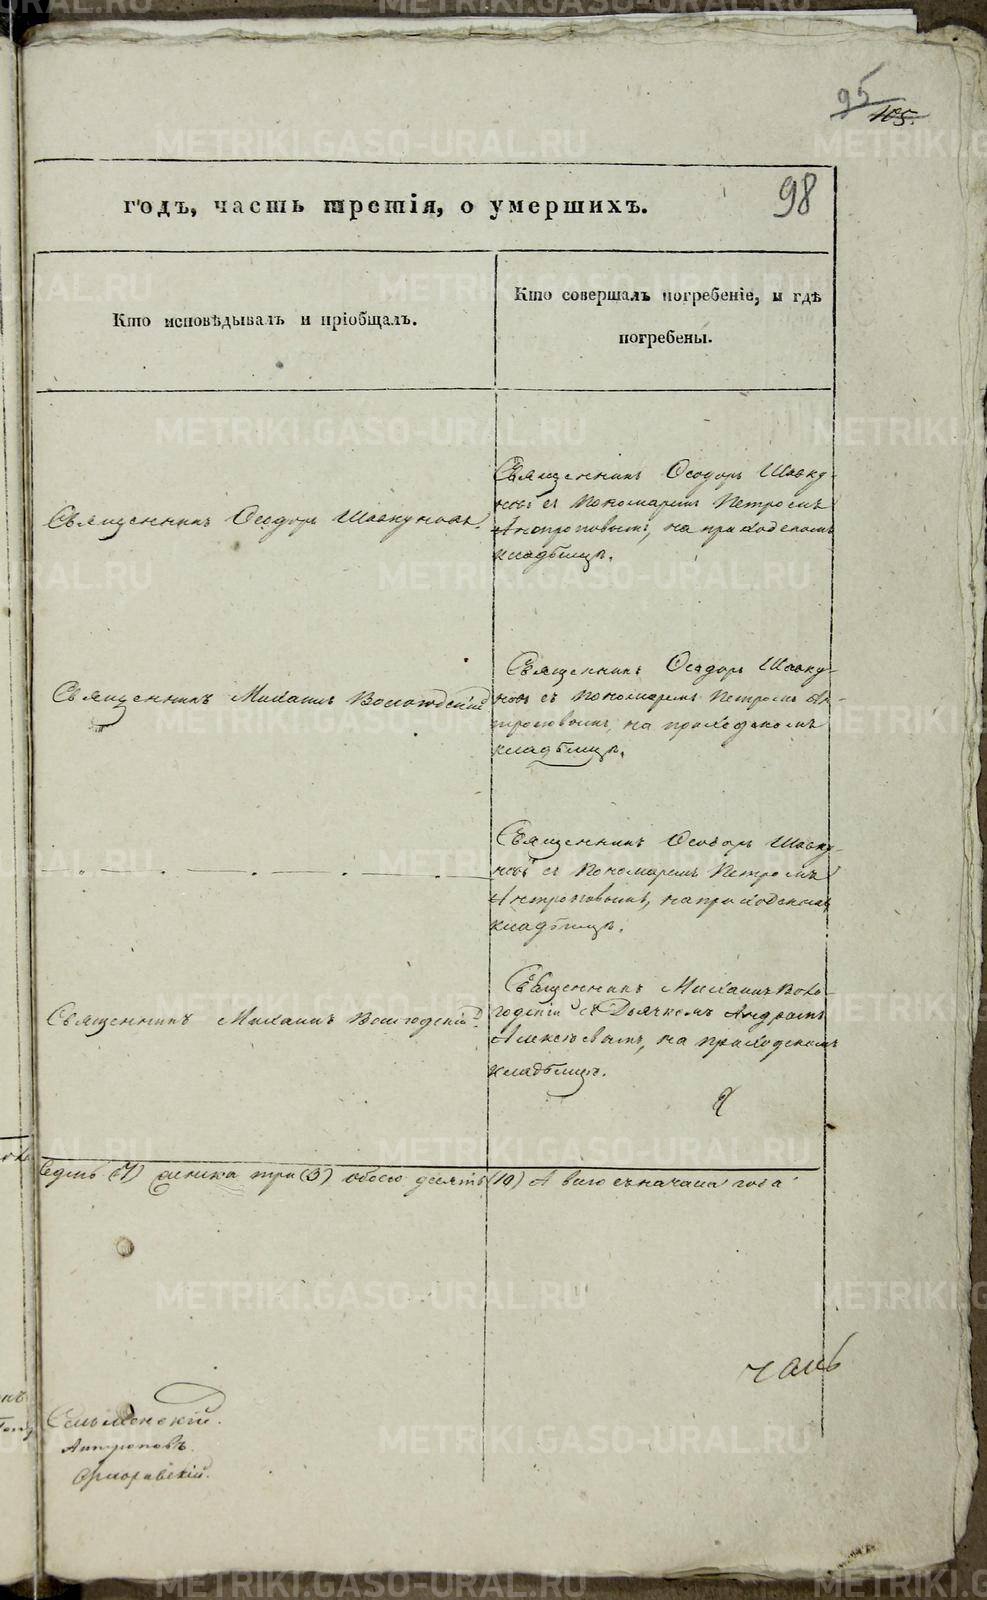 95
105.
98
годъ, часть третія, о умершихъ.
Кто исповѣдывалъ и пріобщалъ.
Кто совершалъ погребеніе, и гдѣ
погребены.
Священникъ Ѳеодоръ Шавкуновъ.
Священникъ Ѳеодоръ Шавку-
новъ съ Пономаремъ Петромъ
Антроповымъ, на приходскомъ
кладбищѣ.
Священникъ Михаилъ Вологодскій
Священникъ Ѳеодоръ Шавку-
новъ съ Пономаремъ Петромъ Ан-
троповымъ, на приходскомъ
кладбищѣ.
Священникъ Ѳеодоръ Шавку-
новъ съ Пономаремъ Петромъ
Антроповымъ, на приходскомъ
кладбищѣ.
Священникъ Михаилъ Вологодскій
Священникъ Михаилъ Воло-
годскій съ Дьячкомъ Андреемъ
Алексѣевымъ, на приходскомъ
кладбищѣ.
седмь (7) женска три (3) обоего десять (10) А всего съ начала года
часть
Антроповъ
METRIKI.GASO-URAL.RU